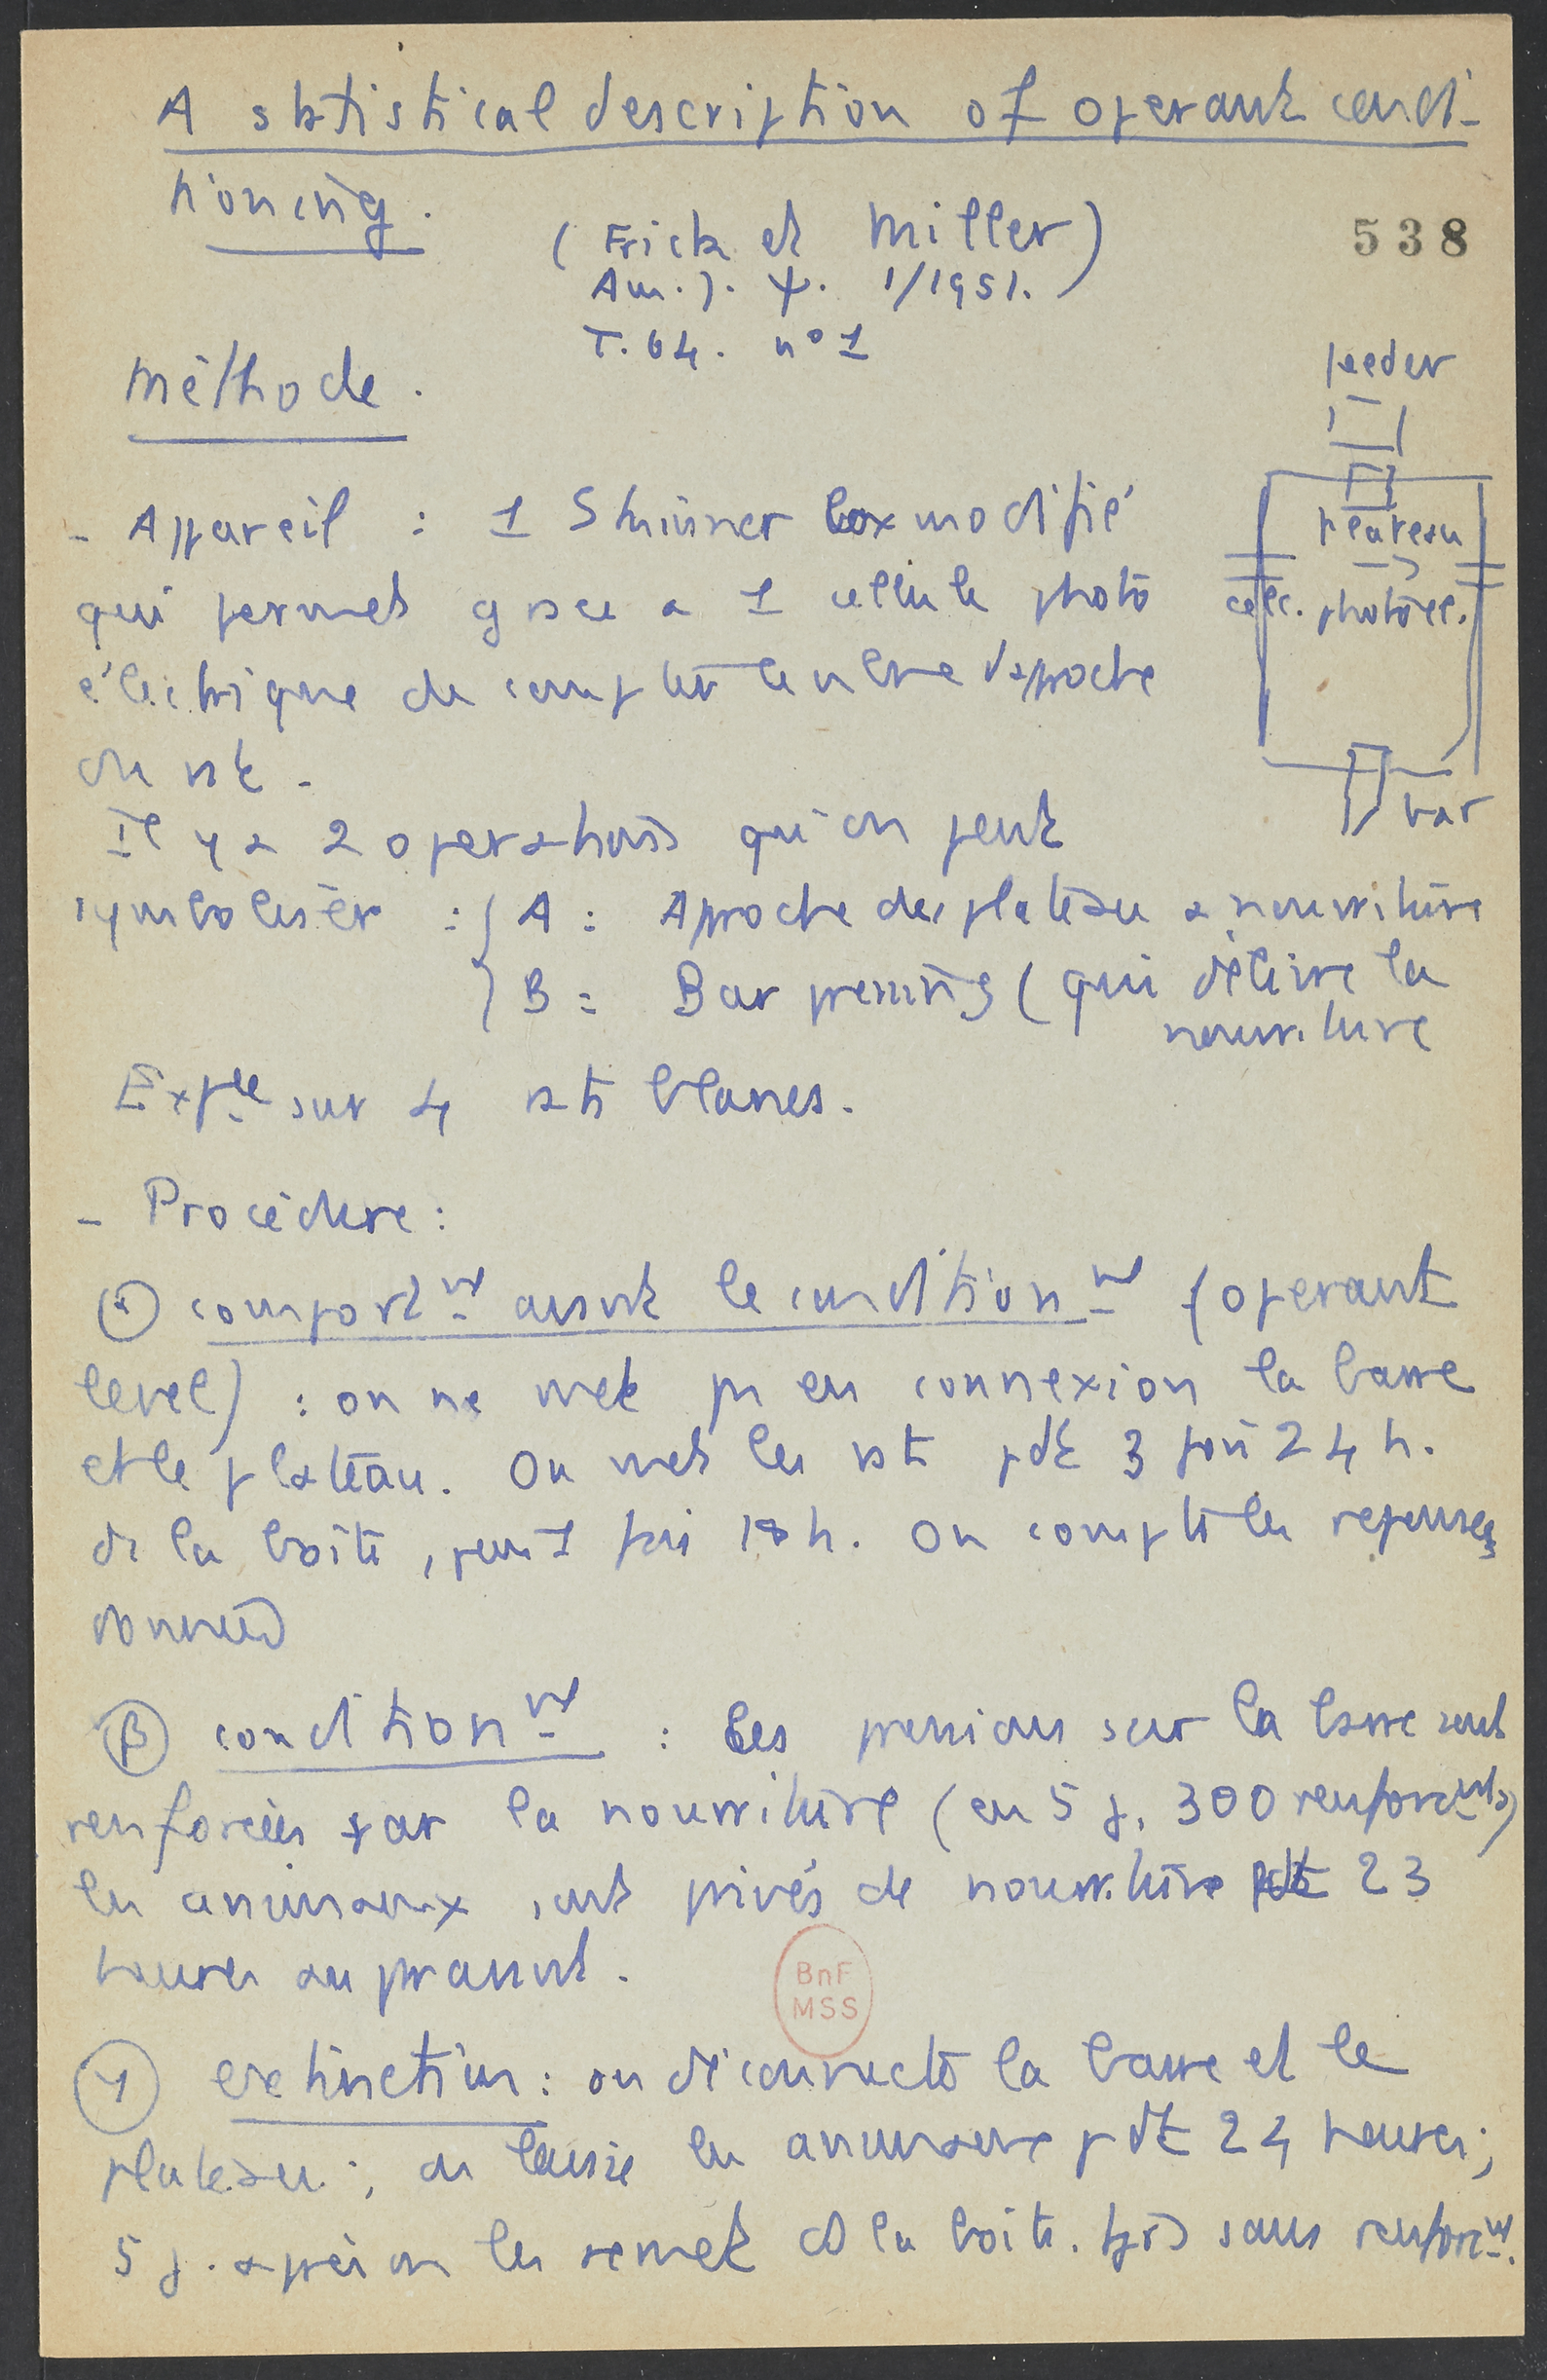 A statistical description of operant condi-
tioning.
(Frick et Miller)
Am. J. ψ. 1/1951.
T. 64. n° 1
538
Méthode.
feeder
plateau
cell. photoél.
bar
- Appareil : 1 Skinner box modifié
qui permet grace a 1 cellule photo
électrique de compter le nbre d'approche
du rat.
Il y a 2 operations qu'on peut
symboliser : { A : Approche du plateau a nourriture
B : Bar pressing (qui délivre la
nourriture
Expce sur 4 rats blancs.
- Procédure :
α comportnt avant le conditionnt (operant
level) : on ne met pas en connexion la barre
et le plateau. On met les rats pdt 3 fois 24 h.
ds la boîte, puis 1 fois 18 h. On compte les reponses
données
β conditionnt : Les pressions sur la barre sont
renforcées par la nourriture (en 5 j. 300 renforcnts)
les animaux sont privés de nourriture pdt 23
heures auparavant.
γ extinction : on déconnecte la barre et le
plateau ; on laisse les animaux pdt 24 heures ;
5 j. après on les remet ds la boîte. tjrs sans renforcnt.
BnF
MSS